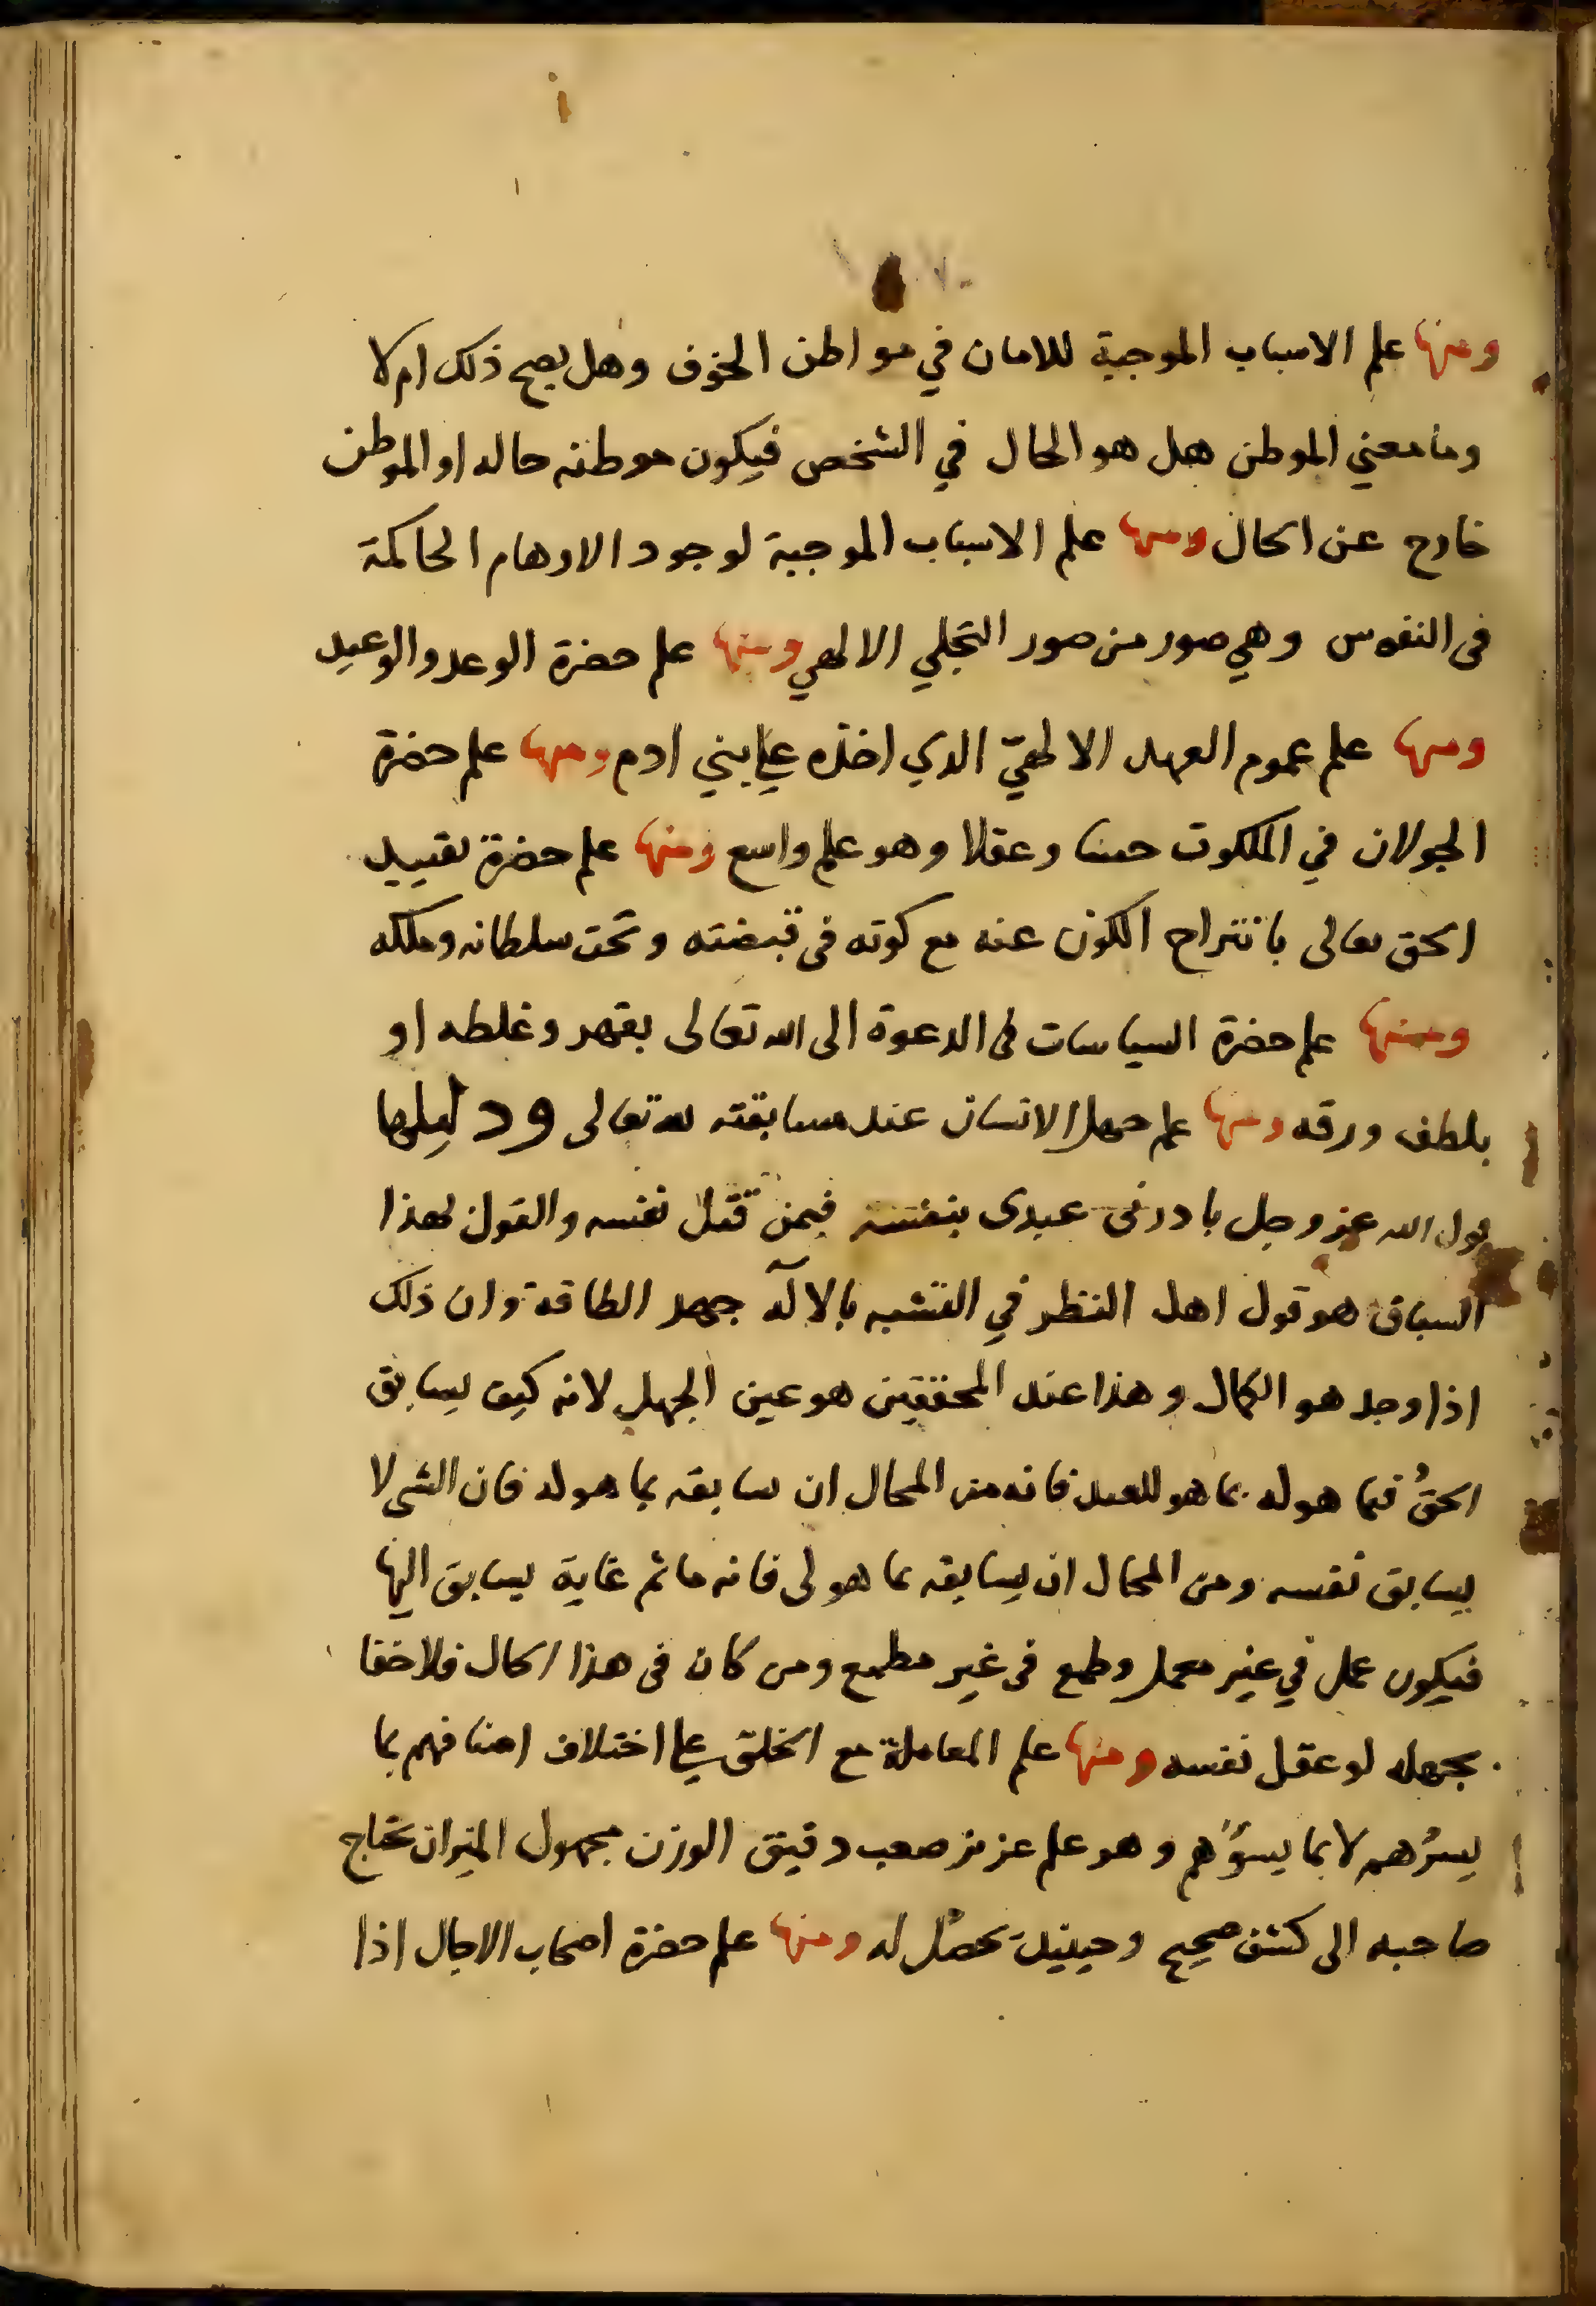 ومنها علم الاسباب الموجبة للامان في مواطن الخوف وهل يصح ذلك ام لا
وما معني الموطن هل هو الحال في الشخص فيكون موطنه حاله او الموطن
خارج عن الحال ومنها علم الاسباب الموجبة لوجود الاوهام الحاكمة
فى النفوس وهي صور من صور التجلي الالهي ومنها علم حضرة الوعد والوعيد
ومنها علم عموم العهد الالهيّ الذي اخذه علي بني ادم ومنها علم حضرة
الجولان في الملكوت حسا وعقلا وهو علم واسع ومنها علم حضرة تقييد
الحق تعالى بانتراح الكون عنه مع كونه فى قبضته وتحت سلطانه وملكه
ومنها علم حضرة السياسات فى الدعوة الى الله تعالى بقهر وغلطه او
بلطف ورقه ومنها علم جهل الانسان عند مسابقته لله تعالى ودليلها
قول الله عز وجل بادرنى عبدى بنفسه فيمن قتل نفسه والقول بهذا
السباق هو قول اهل النظر في التشبه بالاله جهد الطاقة وان ذلك
اذا وجد هو الكمال وهذا عند المحققين هو عين الجهل لانه كيف يسابق
الحقُ فيما هو له بما هو للعبد فانه من المحال ان يسابقه بما هو له فان الشى لا
يسابق نفسه ومن المحال ان يسابقه بما هو لى فانه ما ثم غاية يسابق اليها
فيكون عمل في غير معمل وطمع فى غير مطمع ومن كان فى هذا الحال فلا خفا
بجهله لو عقل نفسه ومنها علم المعاملة مع الخلق علي اختلاف اصنافهم بما
يسرُهم لا بما يسؤُهم وهو علم عزيز صعب دقيق الوزن مجهول الميزان يحتاج
صاحبه الى كشف صحيح وحينيذ يحصل له ومنها علم حضرة اصحاب الاجال اذا